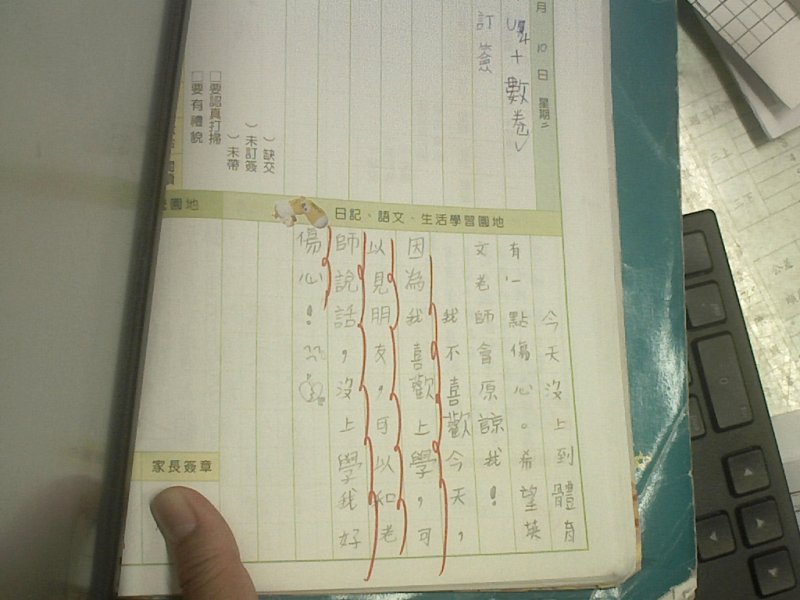 月10日 星期二
數卷✓
訂簽
□要認真打掃
□要有禮貌
)缺交
)未訂簽
)未帶
日記、語文、生活學習園地
園地
今天沒上到體育
有一點傷心。希望英
文老師會原諒我!
我不喜歡今天,
因為我喜歡上學,可
以見朋友,可以和老
師說話,沒上學我好
傷心!
家長簽章